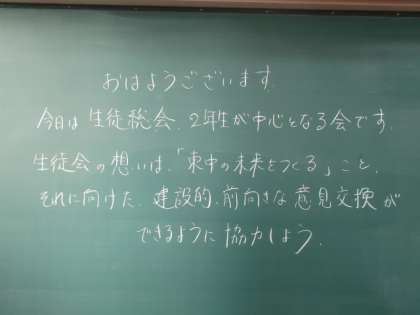 おはようございます.
今日は生徒総会、2年生が中心となる会です.
生徒会の想いは、「東中の未来をつくる」こと.
それに向けた、建設的、前向きな意見交換が
できるように協力しよう.